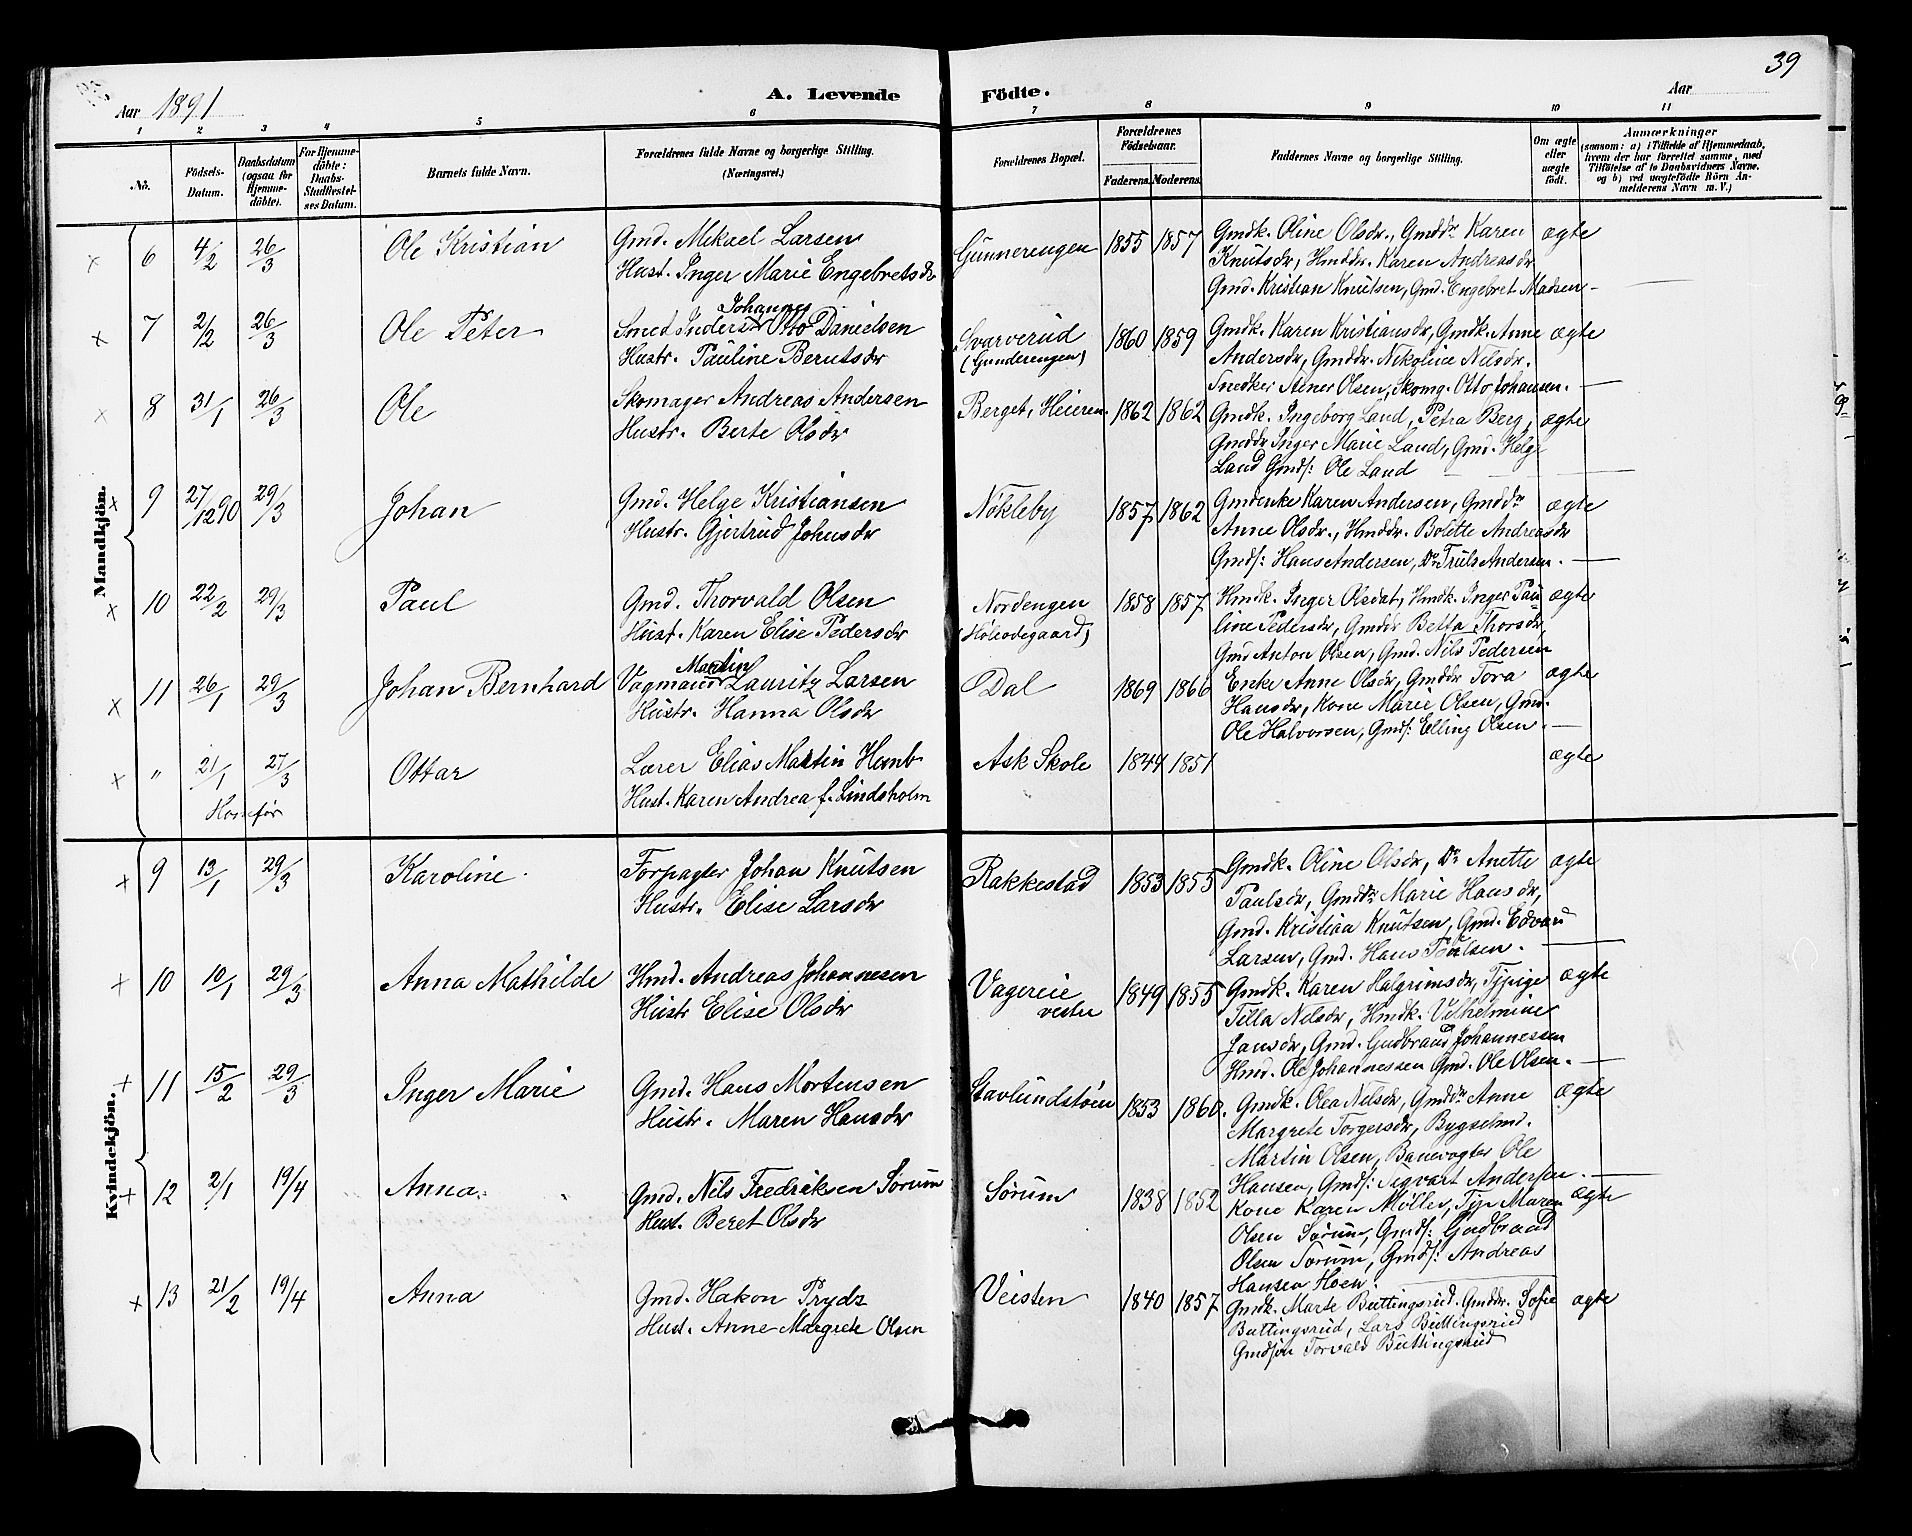 39
Aar 1891 A. Levende Födte. Aar
1 2 3 4 5 6 7 8 9 10 11
No. Födsels-Datum. Daabsdatum (ogsaa for Hjemmedöbte). For Hjemmedöbte: Daabs-Stadfæstelses Datum. Barnets fulde Navn. Forældrenes fulde Navne og borgerlige Stilling. (Næringsvei.) Forældrenes Bopæl. Forældrenes Födselsaar. Faderens. Moderens. Faddernes Navne og borgerlige Stilling. Om ægte eller uægte födt. Anmærkninger (saasom: a) i Tilfælde af Hjemmedaab, hvem der har forrettet samme, med Tilföielse af to Daabsvidners Navne, og b) ved uægtefödte Börn Anmelderens Navn m. V.)
Mandkjön.
× 6 4/2 26/3 Ole Kristian Gmd. Mikael Larsen Gunnerengen 1855 1857 Gmdk. Oline Olsdr., Gmddr Karen ægte
Hust. Inger Marie Engebretsdr Knutsdr, Hmddr. Karen Andreasdr
Gmd. Kristian Knutsen, Gmd. Engebret Madsen —
Johannes
× 7 2/12 26/3 Ole Peter Smed Otto Danielsen Svarverud 1860 1859 Gmdk. Karen Kristiansdr, Gmdk. Anne ægte
Hustr. Pauline Berntsdr (Gunderengen) Andersdr, Gmddr. Nikoline Nilsdr.
Snedker Abner Olsen, Skomg. Otto Johansen. —
× 8 31/1 26/3 Ole Skomager Andreas Andersen Berget, Heieren. 1862 1862 Gmdk. Ingeborg Land, Petra Berg, ægte
Hustr. Berte Olsdr Gmddr Inger Marie Land, Gmd. Helge
Land Gmds: Ole Land —
× 9 27/12 90 29/3 Johan Gmd. Helge Kristiansen Nökleby 1857 1862 Gmdenke Karen Andersen, Gmddr ægte
Hustr. Gjertrud Johnsdr Anne Olsdr., Hmddr. Bolette Andreasdr
Gmds: Hans Andersen, Do Truls Andersen. —
× 10 22/2 29/3 Paul Gmd. Thorvald Olsen Nordengen 1858 1857 Hmdk. Inger Olsdat, Hmdk. Inger Pau- ægte
Hust. Karen Elise Pedersdr line Pedersdr, Gmddr Betta Thorsdr,
Gmd Anton Olsen, Gmd. Nils Pedersen
Martin
× 11 26/1 29/3 Johan Bernhard Vogmand Lauritz Larsen Dal 1869 1866 Enke Anne Olsdr, Gmddr Tora ægte
Hustr. Hanna Olsdr Hansdr, Kone Marie Olsen, Gmd.
Ole Halvorsen, Gmds: Elling Olsen. —
× " 21/1 27/3 Ottar Lærer Elias Martin Ask Skole 1844 1851 ægte
Hust. Karen Andrea f. Lindsholm
Kvindekjön.
× 9 13/1 29/3 Karoline Forpagter Johan Knutsen Rakkestad 1853 1855 Gmdk. Oline Olsdr, Do Anette ægte
Hustr. Elise Larsdr Paulsdr, Gmddr Marie Hansdr,
Gmd. Kristian Knutsen, Gmd. Edvard
Larsen, Gmd. Hans Paulsen. —
× 10 10/1 29/3 Anna Mathilde Hmd. Andreas Johannesen Vagereie 1849 1855 Gmdk. Karen Halgrimsdr, Typige ægte
Hustr Elise Olsdr vestre Tilla Nilsdr, Hmdk. Vilhelmine
Jansdr, Gmd. Gudbrand Johannessen
Hmd. Ole Johannessen Gmd. Ole Olsen. —
× 11 15/2 29/3 Inger Marie Gmd. Hans Mortensen 1853 1860. Gmdk. Olea Nilsdr, Gmddr Anne ægte
Hustr. Maren Hansdr Margrete Torgersdr, Bygselmd.
Martin Olsen, Banevogter Ole
Hansen, Gmds: Sigvart Andersen. —
× 12 2/1 19/4 Anna Gmd. Nils Fredriksen Sörum Sörum 1838 1852 Kone Karen Möller, Typ Maren ægte
Hust. Beret Olsdr Olsen Sörum, Gmds: Gudbrand
Olsen Sörum, Gmds: Andreas
Hansen Hoen.
× 13 21/2 19/4 Anna Gmd. Hakon Prydz Veisten 1840 1857 Gmdk. Marte Buttingsrud. Gmddr. Sofie ægte
Hust. Anne Margrete Olsen Buttingsrud, Lars Buttingsrud
Gmdsön Torvald Buttingsrud